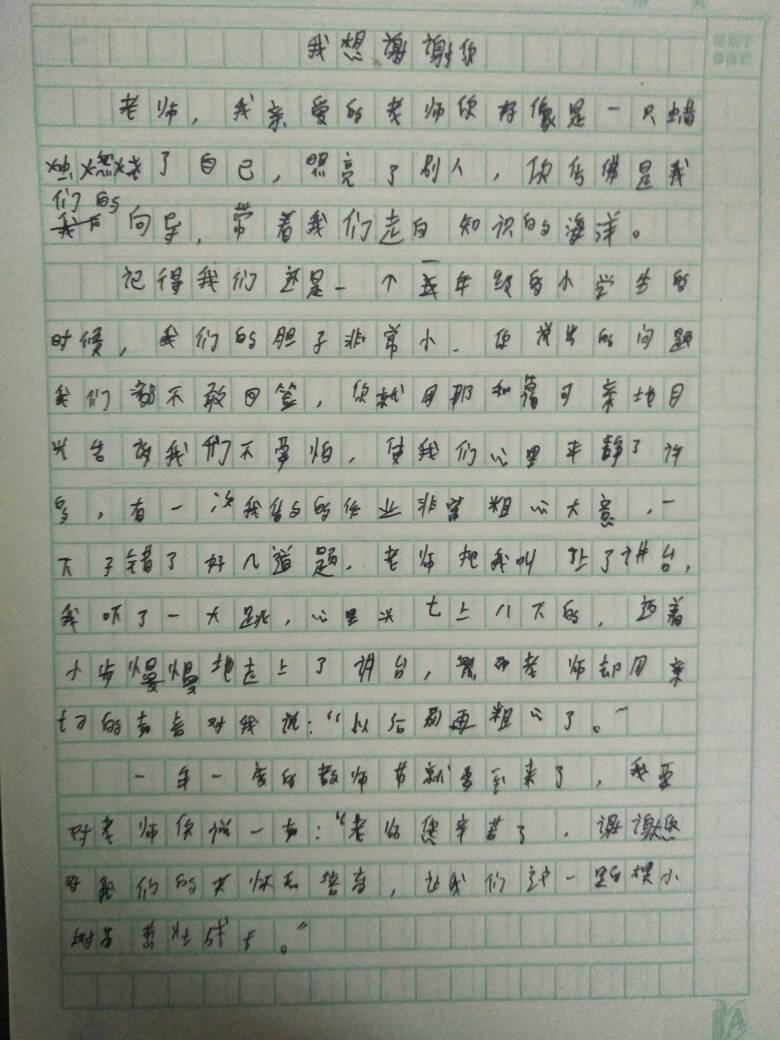 我想谢谢你
老师，我亲爱的老师你好像是一只蜡
烛燃烧了自己，照亮了别人，你仿佛是我
们的
向导，带着我们走向知识的海洋。
记得我们还是一个一年级的小学生的
时候，我们的胆子非常小．你提出的问题
我们都不敢回答，你就用那和蔼可亲地目
光告诉我们不要怕，使我们心里平静了许
多，有一次我写的作业非常粗心大意，一
下子错了好几道题．老师把我叫上了讲台，
我吓了一大跳，心里头七上八下的，迈着
小步慢慢地走上了讲台，老师却用亲
切的声音对我说：“以后别再粗心了。”
一年一度的教师节就要到来了，我要
对老师你说一声：“老师您辛苦了．谢谢您
对我们的关怀和培育，让我们这一棵棵小
树苗茁壮成长。”